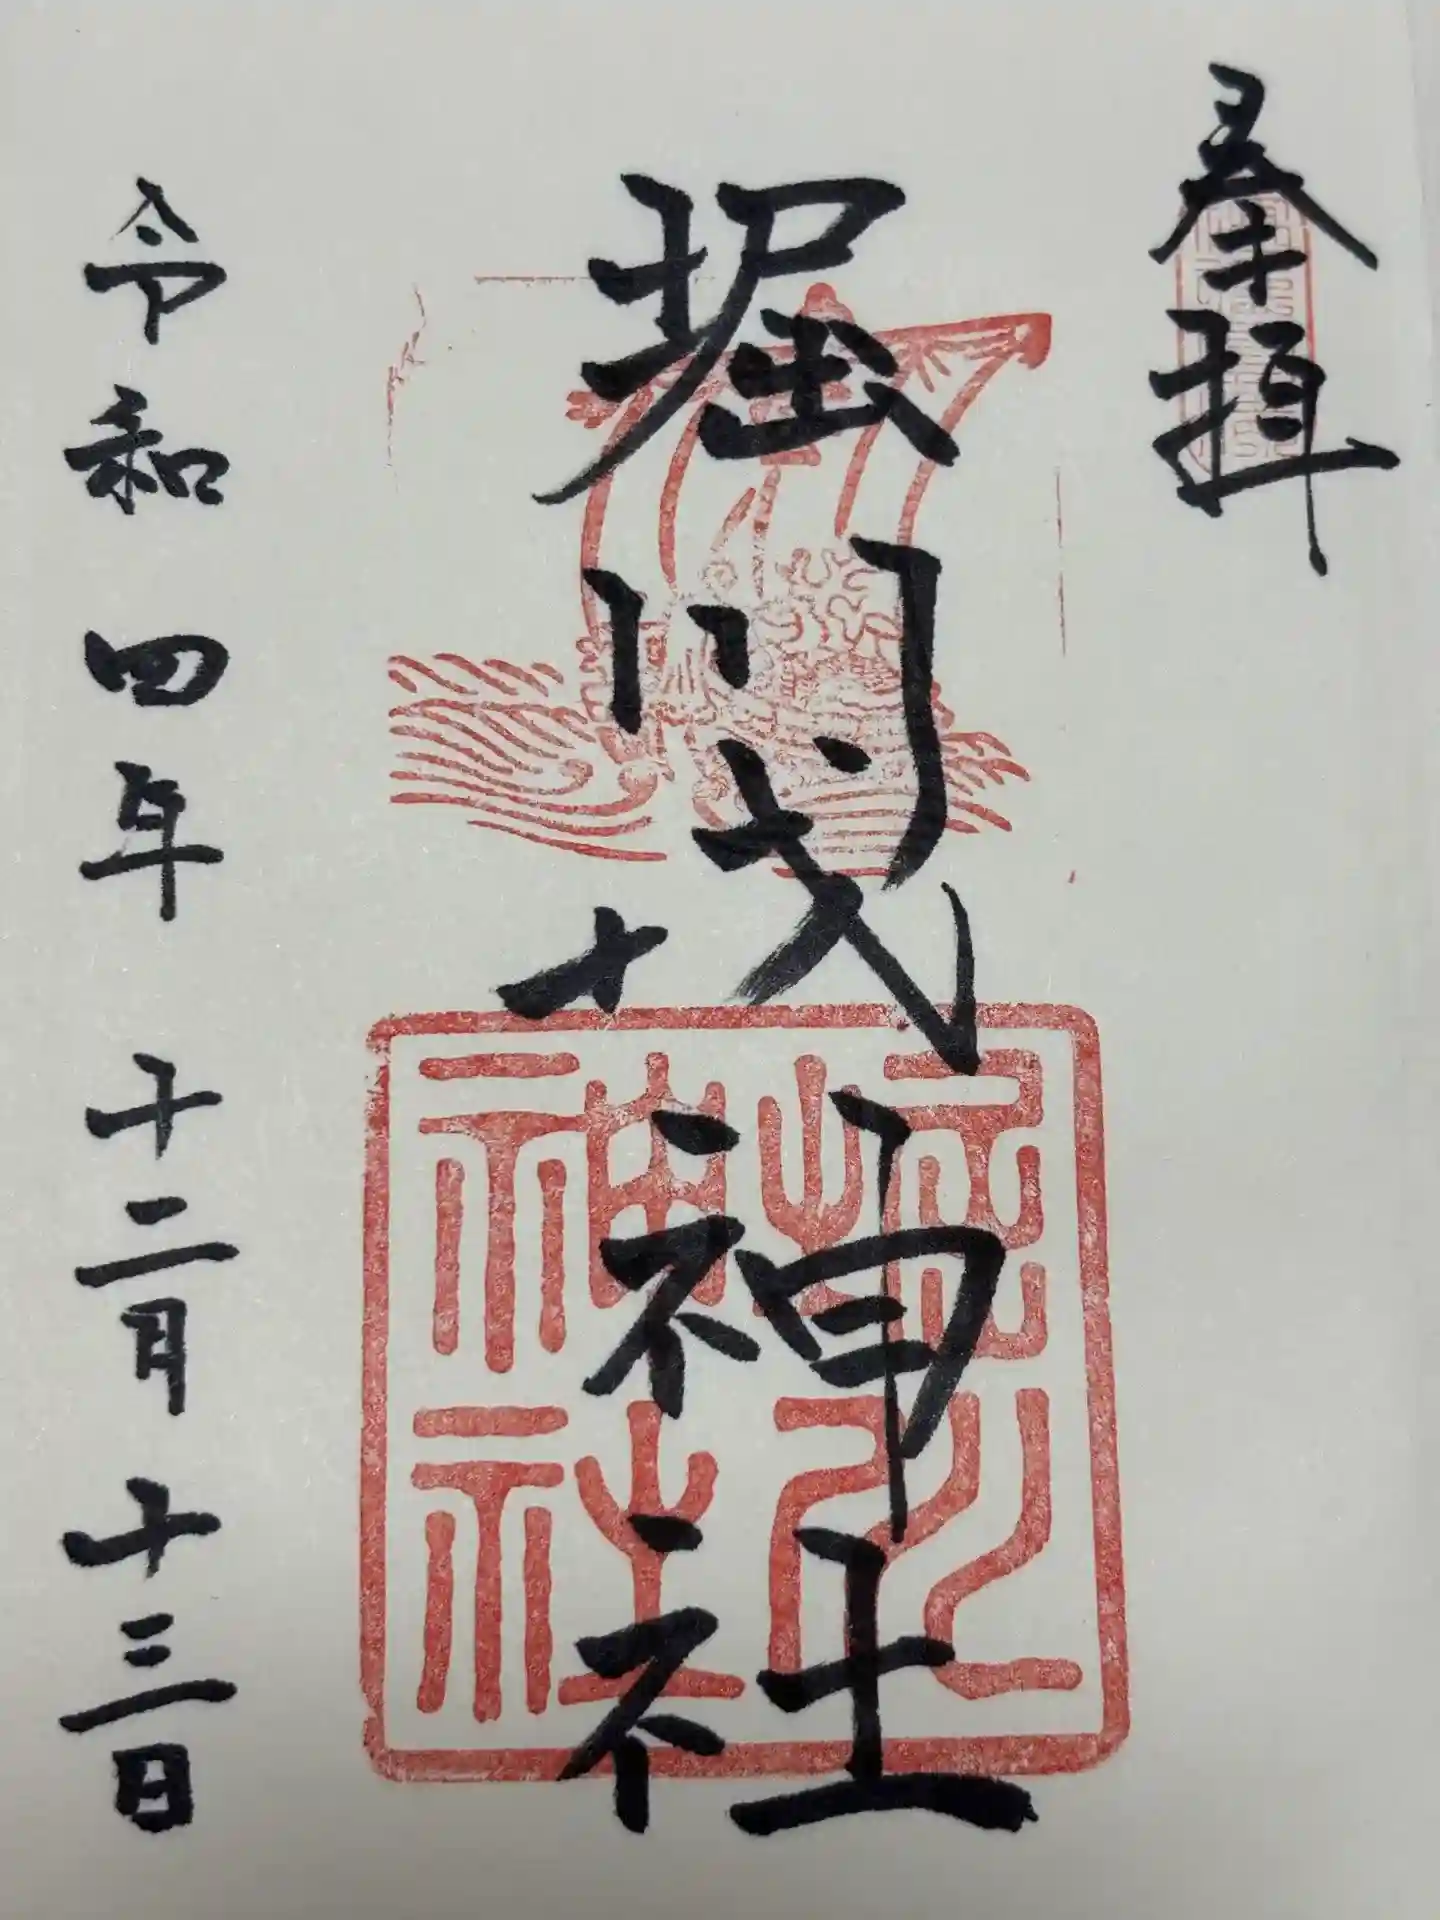 奉拝
堀川戎神社
令和四年十二月十三日
堀川
神社